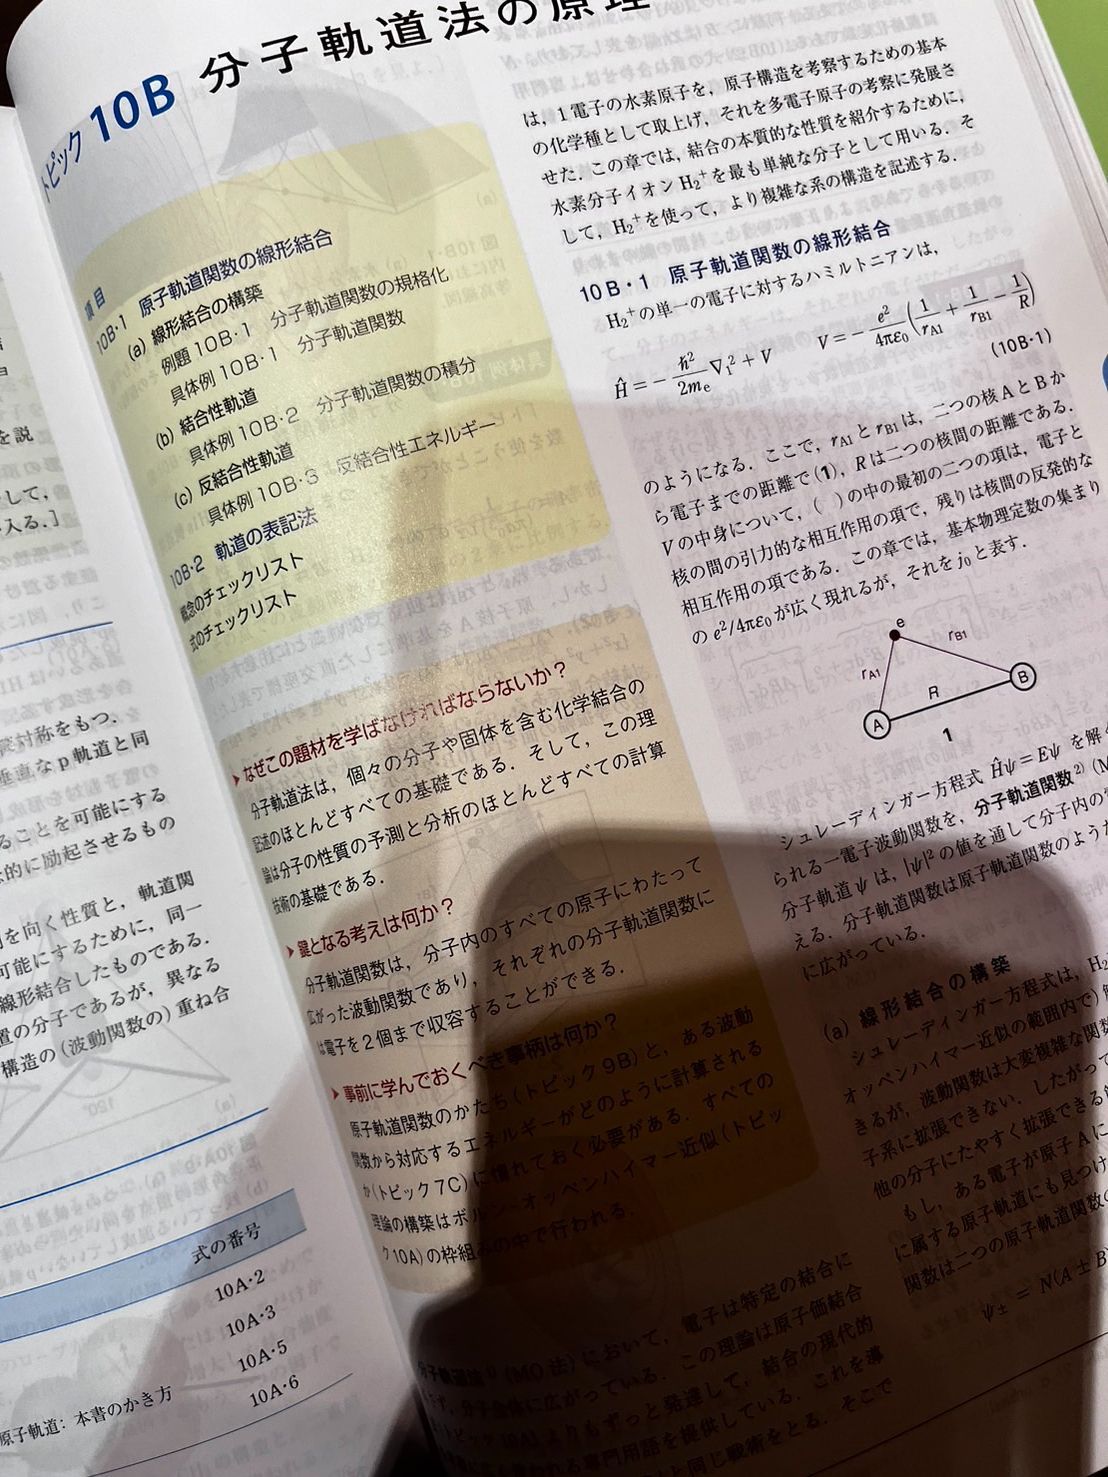 説
して,
入る.]
対称をもつ.
垂直なp軌道と同
ることを可能にする
的に励起させるもの
を向く性質と,軌道関
可能にするために,同一
線形結合したものである.
置の分子であるが,異なる
構造の(波動関数の)重ね合
式の番号
10A・2
10A・3
10A・5
10A・6
原子軌道:本書のかき方
トピック 10B 分子軌道法の原理
項目
10B・1 原子軌道関数の線形結合
(a) 線形結合の構築
例題 10B・1 分子軌道関数の規格化
具体例 10B・1 分子軌道関数
(b) 結合性軌道
具体例 10B・2 分子軌道関数の積分
(c) 反結合性軌道
具体例 10B・3 反結合性エネルギー
10B・2 軌道の表記法
概念のチェックリスト
式のチェックリスト
▶ なぜこの題材を学ばなければならないか?
分子軌道法は,個々の分子や固体を含む化学結合の
記述のほとんどすべての基礎である.そして,この理
論は分子の性質の予測と分析のほとんどすべての計算
技術の基礎である.
▶ 鍵となる考えは何か?
分子軌道関数は,分子内のすべての原子にわたって
広がった波動関数であり,それぞれの分子軌道関数に
は電子を2個まで収容することができる.
▶ 事前に学んでおくべき事柄は何か?
原子軌道関数のかたち(トピック9B)と,ある波動
関数から対応するエネルギーがどのように計算される
か(トピック7C)に慣れておく必要がある.すべての
理論の構築はボルン-オッペンハイマー近似(トピッ
ク10A)の枠組みの中で行われる.
分子軌道法¹⁾(MO法)において,電子は特定の結合に
ず,分子全体に広がっている.この理論は原子価結合
トピック10A)よりもずっと発達して,結合の現代的
われる専門用語を提供している.これを導
同じ戦術をとる.そこで
は,1電子の水素原子を,原子構造を考察するための基本
の化学種として取上げ,それを多電子原子の考察に発展さ
せた.この章では,結合の本質的な性質を紹介するために,
水素分子イオン H₂⁺ を最も単純な分子として用いる.そ
して,H₂⁺ を使って,より複雑な系の構造を記述する.
10B・1 原子軌道関数の線形結合
H₂⁺ の単一の電子に対するハミルトニアンは,
Ĥ = −ħ²/2mₑ ∇₁² + V  V = −e²/4πε₀ (1/r_A1 + 1/r_B1 − 1/R)
(10B・1)
のようになる.ここで,r_A1 と r_B1 は,二つの核AとBか
ら電子までの距離で(1),Rは二つの核間の距離である.
Vの中身について,( )の中の最初の二つの項は,電子と
核の間の引力的な相互作用の項で,残りは核間の反発的な
相互作用の項である.この章では,基本物理定数の集まり
の e²/4πε₀ が広く現れるが,それを j₀ と表す.
e
r_A1 r_B1
A R B
1
シュレーディンガー方程式 Ĥψ = Eψ を解
られる一電子波動関数を,分子軌道関数²⁾(M
分子軌道 ψ は,|ψ|² の値を通して分子内の
える.分子軌道関数は原子軌道関数のような
に広がっている.
(a) 線形結合の構築
シュレーディンガー方程式は,H₂
オッペンハイマー近似の範囲内で)
きるが,波動関数は大変複雑な関数
子系に拡張できない.したがって
他の分子にたやすく拡張できる
もし,ある電子が原子Aに
に属する原子軌道にも見つけ
関数は二つの原子軌道関数の
ψ± = N(A ± B